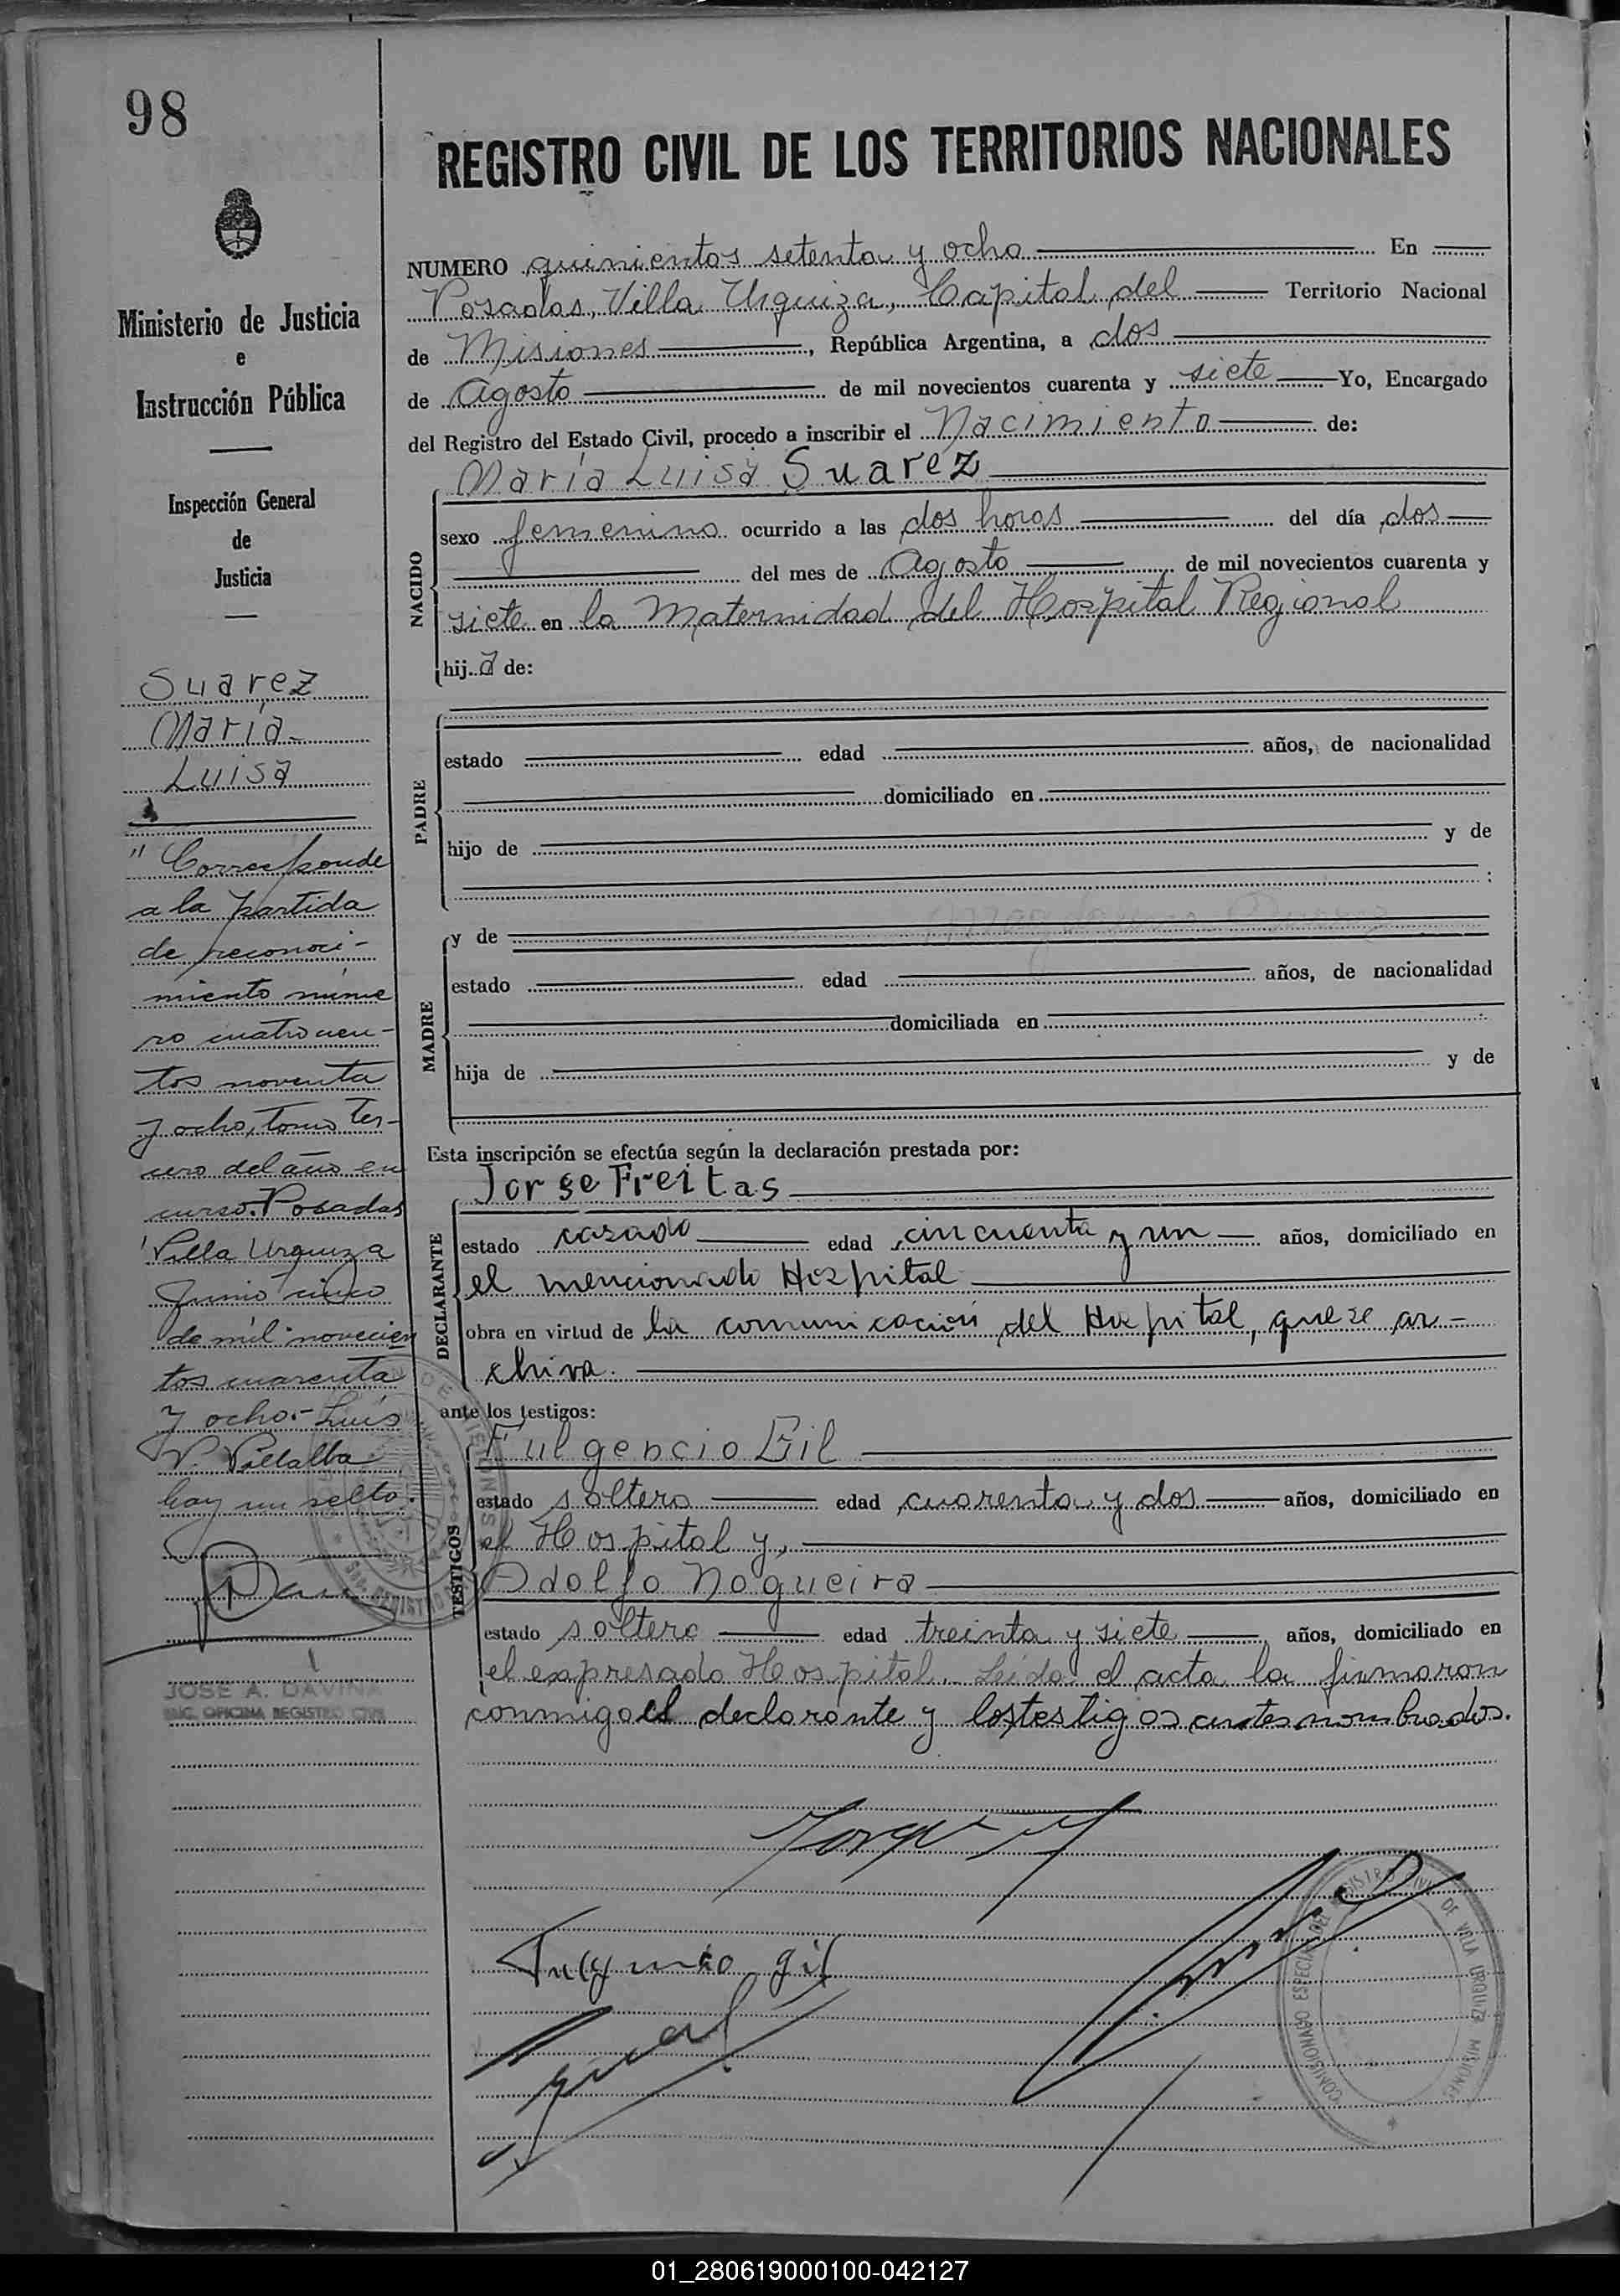 98
Ministerio de Justicia
e
Instrucción Pública
Inspección General
de
Justicia
Suarez
María
Luisa
"Corresponde
a la partida
de reconoci-
miento núme
ro cuatrocien-
tos noventa
y ocho, tomo ter-
cero del año en
curso. Posadas
Villa Urquiza
Junio cinco
de mil novecien
tos cuarenta
y ocho.- Luis
V. Villalba
hay un sello.
JOSE A. DAVIÑA
ENC. OFICINA REGISTRO CIVIL
REGISTRO CIVIL DE LOS TERRITORIOS NACIONALES
NUMERO quinientos setenta y ocho En
Posadas, Villa Urquiza, Capital del Territorio Nacional
de Misiones, República Argentina, a dos
de Agosto de mil novecientos cuarenta y siete Yo, Encargado
del Registro del Estado Civil, procedo a inscribir el Nacimiento de:
María Luisa Suarez
NACIDO
sexo femenino ocurrido a las dos horas del día dos
del mes de Agosto de mil novecientos cuarenta y
siete en la Maternidad del Hospital Regional
hij.a de:
PADRE
estado edad años, de nacionalidad
domiciliado en
hijo de y de
:
MADRE
y de
estado edad años, de nacionalidad
domiciliada en
hija de y de
Esta inscripción se efectúa según la declaración prestada por:
Jorge Freitas
DECLARANTE
estado casado edad cincuenta y un años, domiciliado en
el mencionado Hospital
obra en virtud de la comunicación del Hospital, que se ar-
chiva.
ante los testigos:
Fulgencio Gil
TESTIGOS
estado soltero edad cuarenta y dos años, domiciliado en
el Hospital y,
Adolfo Nogueira
estado soltero edad treinta y siete años, domiciliado en
el expresado Hospital. Leida el acta la firmaron
conmigo el declarante y los testigos antes nombrados.
Fulgencio gil
COMISIONADO ESPECIAL DEL REGISTRO CIVIL DE VILLA URQUIZA MISIONES
01_280619000100-042127